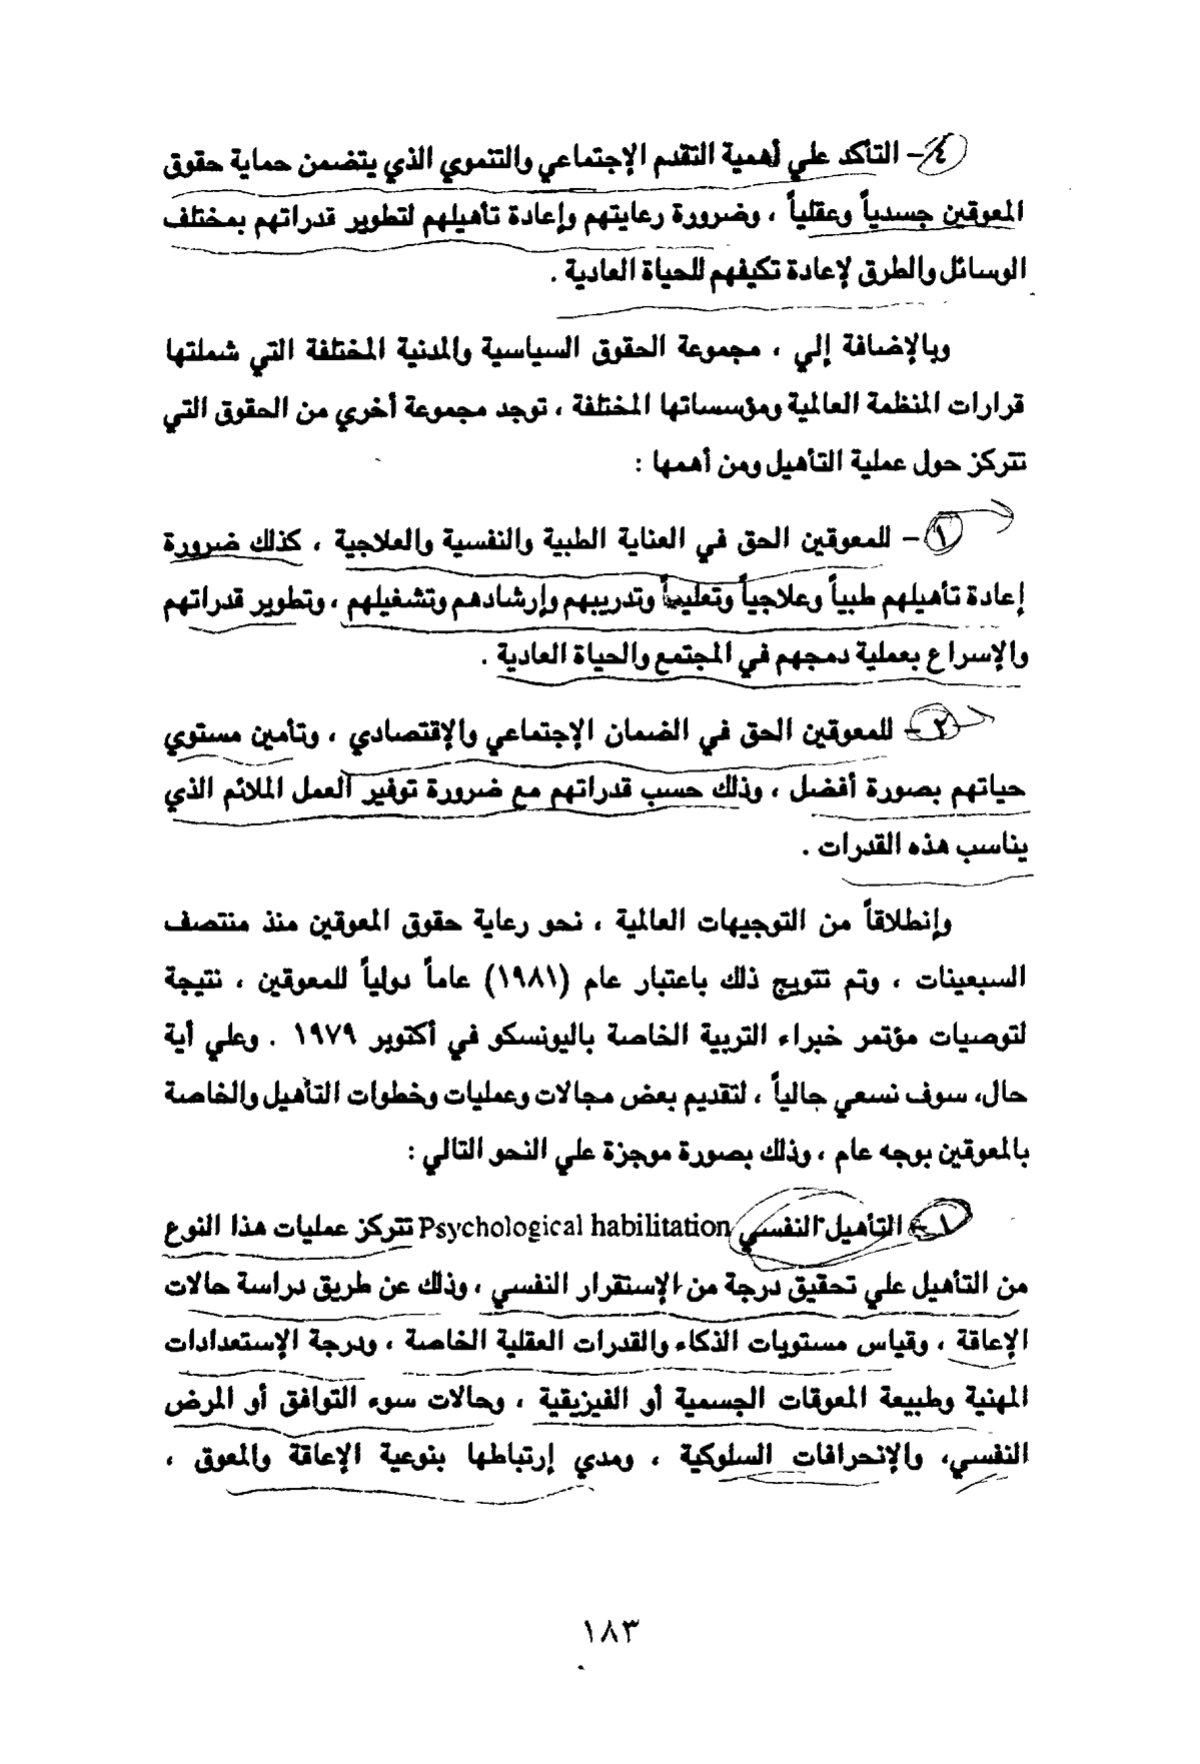 ٤- التأكد علي أهمية التقدم الإجتماعي والتنموي الذي يتضمن حماية حقوق
المعوقين جسدياً وعقلياً ، وضرورة رعايتهم وإعادة تأهيلهم لتطوير قدراتهم بمختلف
الوسائل والطرق لإعادة تكيفهم للحياة العادية .
وبالإضافة إلي ، مجموعة الحقوق السياسية والمدنية المختلفة التي شملتها
قرارات المنظمة العالمية ومؤسساتها المختلفة ، توجد مجموعة أخري من الحقوق التي
تتركز حول عملية التأهيل ومن أهمها :
١- للمعوقين الحق في العناية الطبية والنفسية والعلاجية ، كذلك ضرورة
إعادة تأهيلهم طبياً وعلاجياً وتعليمياً وتدريبهم وإرشادهم وتشغيلهم ، وتطوير قدراتهم
والإسراع بعملية دمجهم في المجتمع والحياة العادية .
٢- للمعوقين الحق في الضمان الإجتماعي والإقتصادي ، وتأمين مستوي
حياتهم بصورة أفضل ، وذلك حسب قدراتهم مع ضرورة توفير العمل الملائم الذي
يناسب هذه القدرات .
وإنطلاقاً من التوجيهات العالمية ، نحو رعاية حقوق المعوقين منذ منتصف
السبعينات ، وتم تتويج ذلك باعتبار عام (١٩٨١) عاماً دولياً للمعوقين ، نتيجة
لتوصيات مؤتمر خبراء التربية الخاصة باليونسكو في أكتوبر ١٩٧٩ . وعلي أية
حال، سوف نسعي جالياً ، لتقديم بعض مجالات وعمليات وخطوات التأهيل والخاصة
بالمعوقين بوجه عام ، وذلك بصورة موجزة علي النحو التالي :
١- التأهيل النفسي Psychological habilitation تتركز عمليات هذا النوع
من التأهيل علي تحقيق درجة من الإستقرار النفسي ، وذلك عن طريق دراسة حالات
الإعاقة ، وقياس مستويات الذكاء والقدرات العقلية الخاصة ، ودرجة الإستعدادات
المهنية وطبيعة المعوقات الجسمية أو الفيزيقية ، وحالات سوء التوافق أو المرض
النفسي، والإنحرافات السلوكية ، ومدي إرتباطها بنوعية الإعاقة والمعوق ،
١٨٣